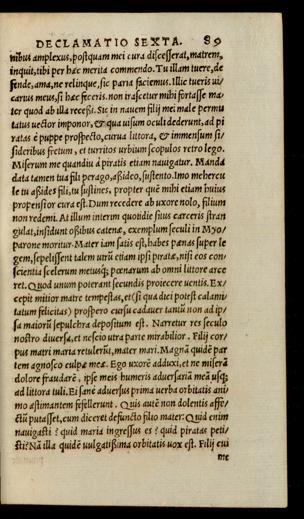 DECLAMATIO SEXTA. 89
nibus amplexus, postquam mei cura discesserat, matrem,
inquit, tibi per hæc merita commendo. Tu illam tuere, de
fende, ama, ne relinque, sic paria faciemus. Illic tueris ui/
carius meus, si hæc feceris. non irascetur mihi fortasse ma
ter quod ab illa recessi. Sic in nauem filij mei male permu
tatus uector imponor, & qua uisum oculi dederunt, ad pi
ratas è puppe prospecto, curua littora, & immensum si/
sideribus fretum, et turritos urbium scopulos retro lego.
Miserum me quandiu à piratis etiam nauigatur. Manda
data tamen tua fili perago, assideo, sustento. Imo mehercu
le tu assides fili, tu sustines, propter quē mihi etiam huius
propensior cura est. Dum recedere ab uxore nolo, filium
non redemi. At illum interim quotidie situs carceris stran
gulat, insidunt ossibus catenæ, exemplum seculi in Myo/
parone moritur. Mater iam satis est, habes pœnas super le
gem, sepelissent talem uirū etiam ipsi piratæ, nisi eos con/
scientia scelerum metusq; pœnarum ab omni littore arce
ret. Quod unum poterant secundis proiecere uentis. Ex/
cepit mitior matre tempestas, et (si qua dici potest calami
tatum felicitas) prospero cursu cadauer tantū non ad ip/
sa maiorū sepulchra depositum est. Narretur res seculo
nostro diuersa, et nescio utra parte mirabilior. Filij cor/
pus matri maria retulerūt, mater mari. Magnā quidē par
tem agnosco culpæ meæ. Ego uxorē adduxi, et ne miserā
dolore fraudarē, ipse meis humeris aduersariā meā usq;
ad littora tuli. Ei sanè aduersus prima uerba orbitatis ani
mo æstimantem fefellerunt. Quis autē non dolentis affe/
ctū putasset, cum diceret defuncto filio mater: Quid enim
nauigasti? quid maria ingressus es? quid piratas peti/
sti? Nā illa quidē uulgatissima orbitatis uox est. Filij cui
me